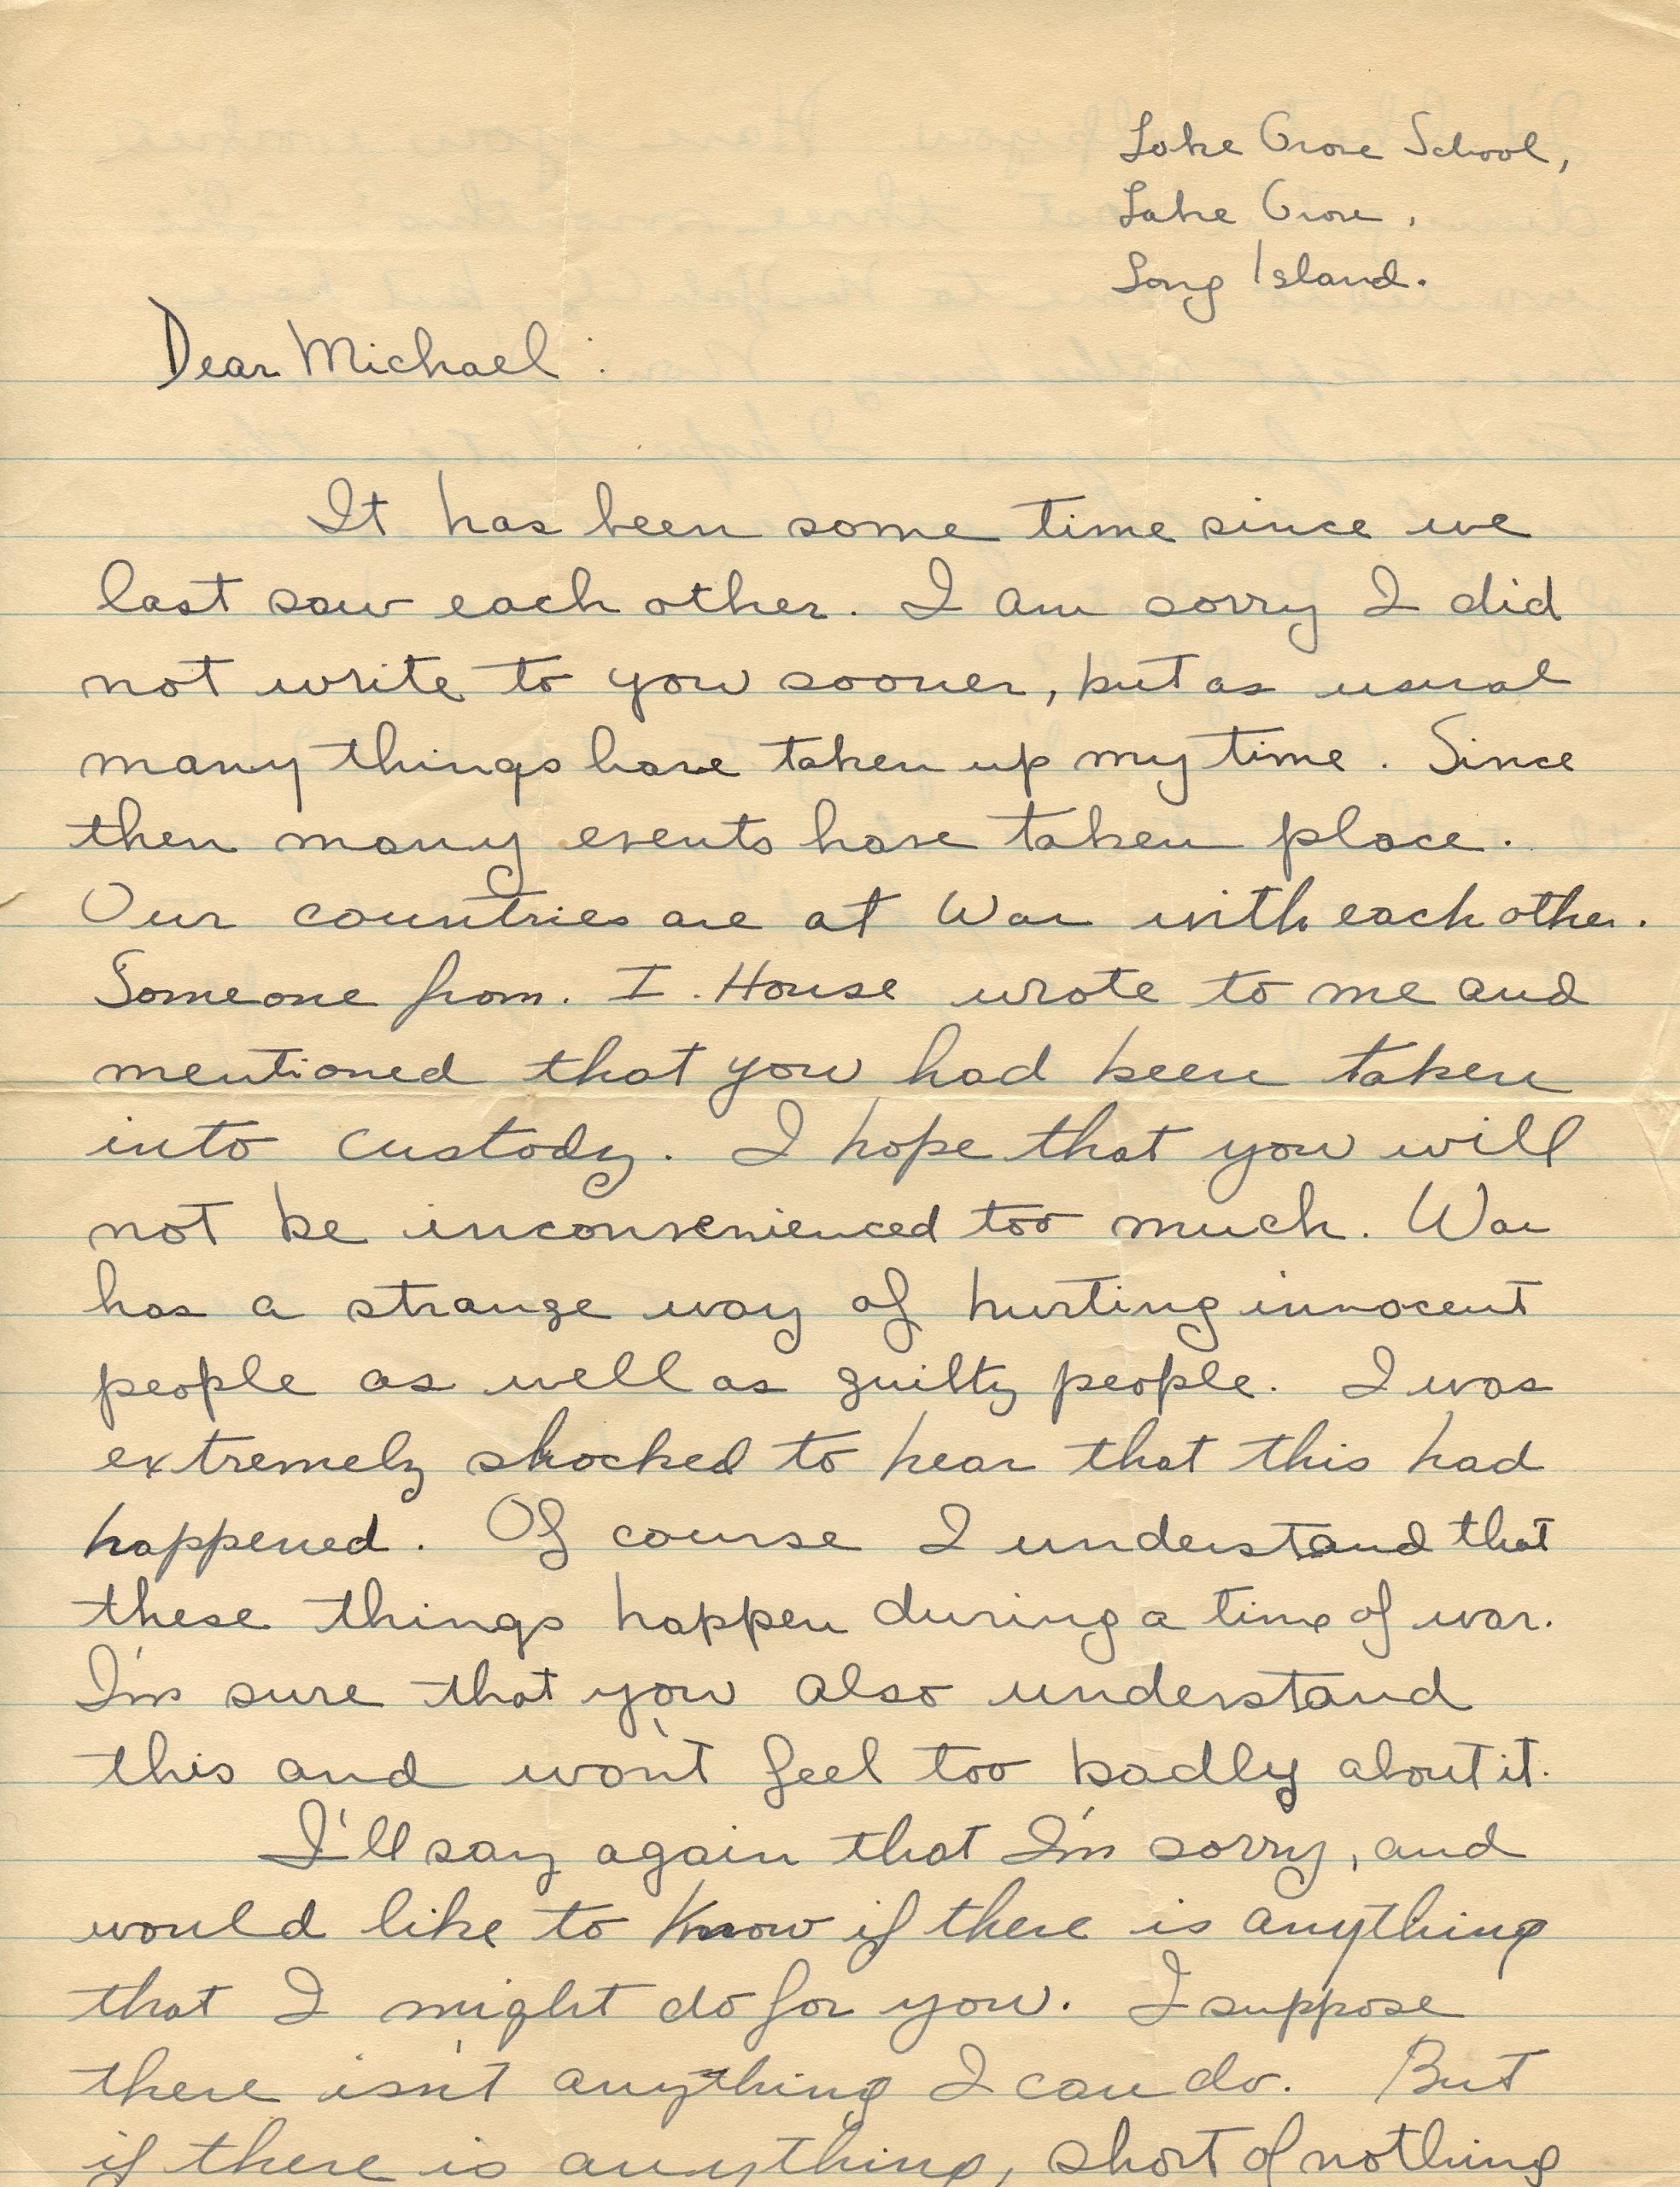 Lake Grove School,
Lake Grove,
Long Island.
Dear Michael:
It has been some time since we
last saw each other. I am sorry I did
not write to you sooner, but as usual
many things have taken up my time. Since
then many events have taken place.
Our countries are at War with each other.
Someone from. I. House wrote to me and
mentioned that you had been taken
into custody. I hope that you will
not be inconvenienced too much. War
has a strange way of hurting innocent
people as well as guilty people. I was
extremely shocked to hear that this had
happened. Of course I understand that
these things happen during a time of war.
I'm sure that you also understand
this and won't feel too badly about it.
I'll say again that I'm sorry, and
would like to know if there is anything
that I might do for you. I suppose
there isn't anything I can do. But
if there is anything, short of nothing